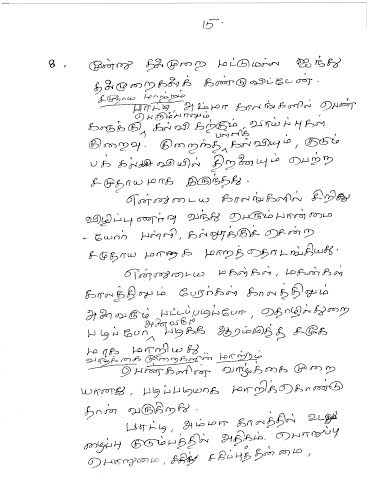 15.
8. இன்று தலைமுறை மட்டுமல்ல ஐந்து
தலைமுறைகளைக் கண்டுவிட்டேன்.
சமுதாய மாற்றம்
பாட்டி, அம்மா காலங்களில் பெண்
பெரும்பாலும்
களுக்கு கல்வி கற்கும் வாய்ப்புகள்
குறைவு. குறைந்த பள்ளிக் கல்வியும், குடும்
பக் கல்வியில் திறனையும் பெற்ற
சமுதாயமாக இருந்தது.
என்னுடைய காலங்களில் சிறிது
விழிப்புணர்வு வந்து பெரும்பான்மை
யோர் பள்ளி, கல்லூரிக்குச் சென்ற
சமுதாய மாறத்தொடங்கியது.
என்னுடைய மகள்கள், மகன்கள்
காலத்திலும் பேரர்கள் காலத்திலும்
அனைவரும் பட்டப்படிப்போ, தொழில்துறை
படிப்போ அனைவரும் படிக்க ஆரம்பித்த சமுதா
யமாக மாறியது
வாழ்க்கை முறைகளின் மாற்றம்
பெண்களின் வாழ்க்கை முறை
யானது, படிப்படியாக மாறிக்கொண்டு
தான் வருகிறது.
பாட்டி, அம்மா காலத்தில் உடலு
ழைப்பு குடும்பத்தில் அதிகம். பொறுப்பு
பொறுமை, சகிப்புத்தன்மை,